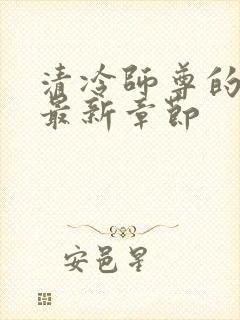 清冷师尊的
最新章节
安邑星